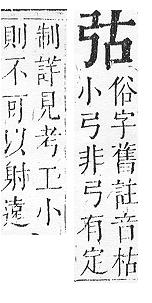 𢎵俗字舊註音枯
小弓非弓有定
制詳見考工小
則不可以射遠